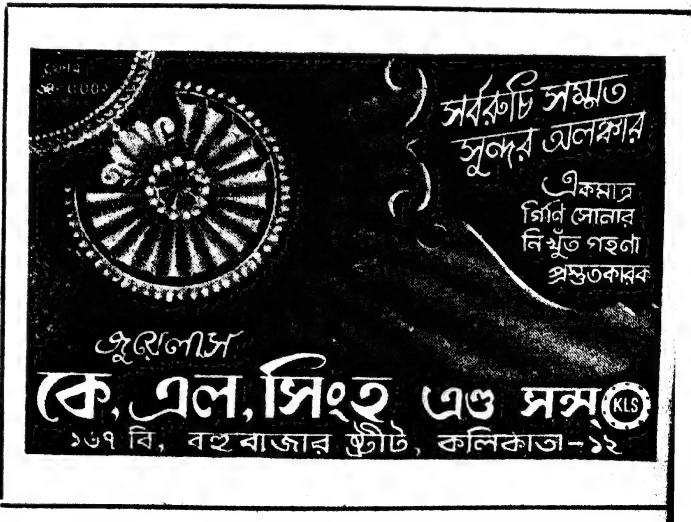 সর্বরুচি সম্মত
সুন্দর অলঙ্কার
একমাত্র
গিণি সোনার
নিখুঁত গহণা
প্রস্তুতকারক
জুয়েলার্স
কে, এল, সিংহ এণ্ড সন্স্
KLS
১৬৭ বি, বহুবাজার ষ্ট্রীট, কলিকাতা-১২